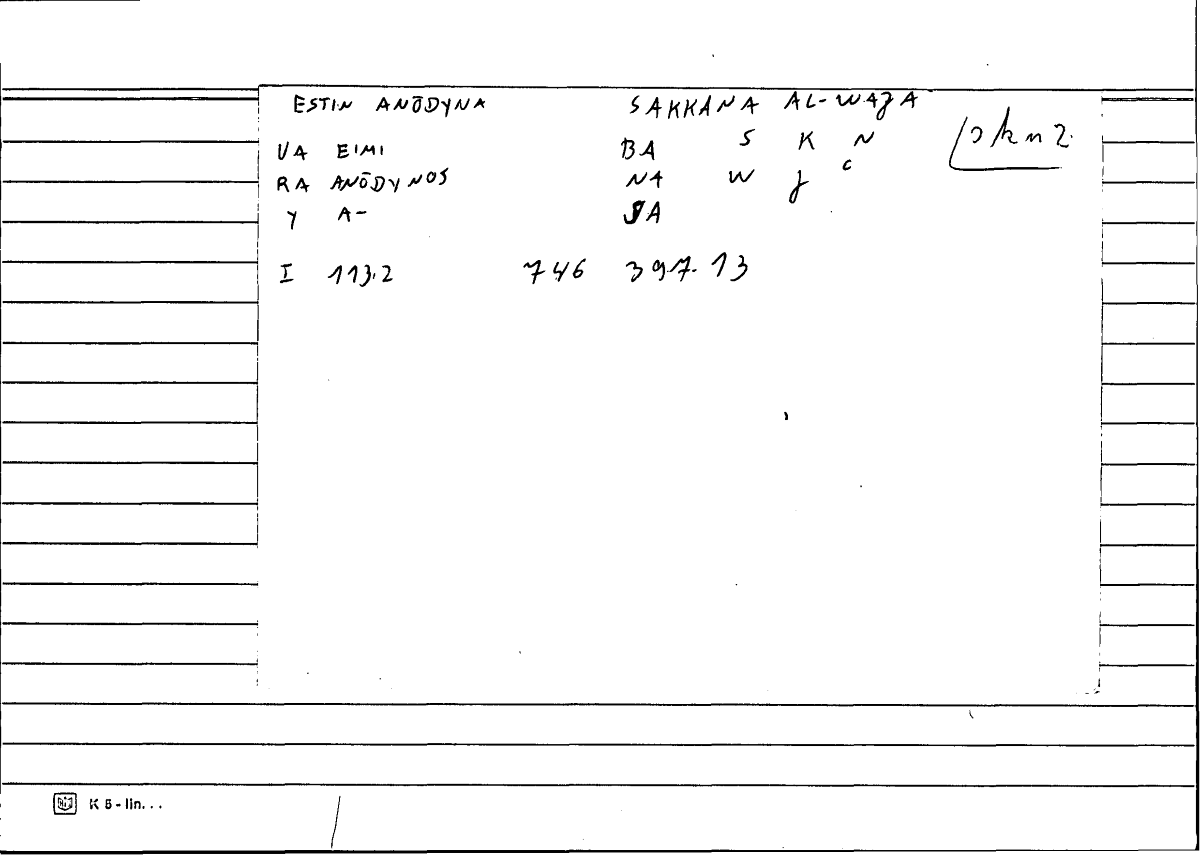 ESTIN ANŌDYNA SAKKANA AL-WAJA
VA EIMI BA S K N
RA ANŌDYNOS NA W J c
Y A- JA
I 113.2 746 397.13
K 5 - lin. . .